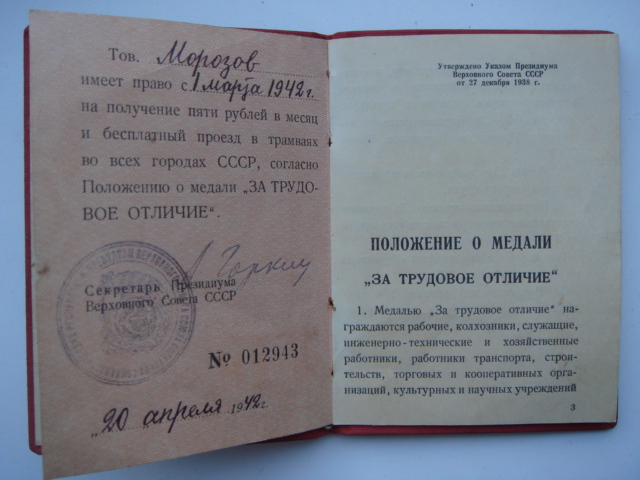 Тов. Морозов
имеет право с 1 марта 1942 г.
на получение пяти рублей в месяц
и бесплатный проезд в трамваях
во всех городах СССР, согласно
Положению о медали „ЗА ТРУДО-
ВОЕ ОТЛИЧИЕ“.
А Горкин
Секретарь Президиума
Верховного Совета СССР
№ 012943
„20 апреля 1942 г.
Утверждено Указом Президиума
Верховного Совета СССР
от 27 декабря 1938 г.
ПОЛОЖЕНИЕ О МЕДАЛИ
„ЗА ТРУДОВОЕ ОТЛИЧИЕ“
1. Медалью „За трудовое отличие“ на-
граждаются рабочие, колхозники, служащие,
инженерно-технические и хозяйственные
работники, работники транспорта, строи-
тельств, торговых и кооперативных орга-
низаций, культурных и научных учреждений
3